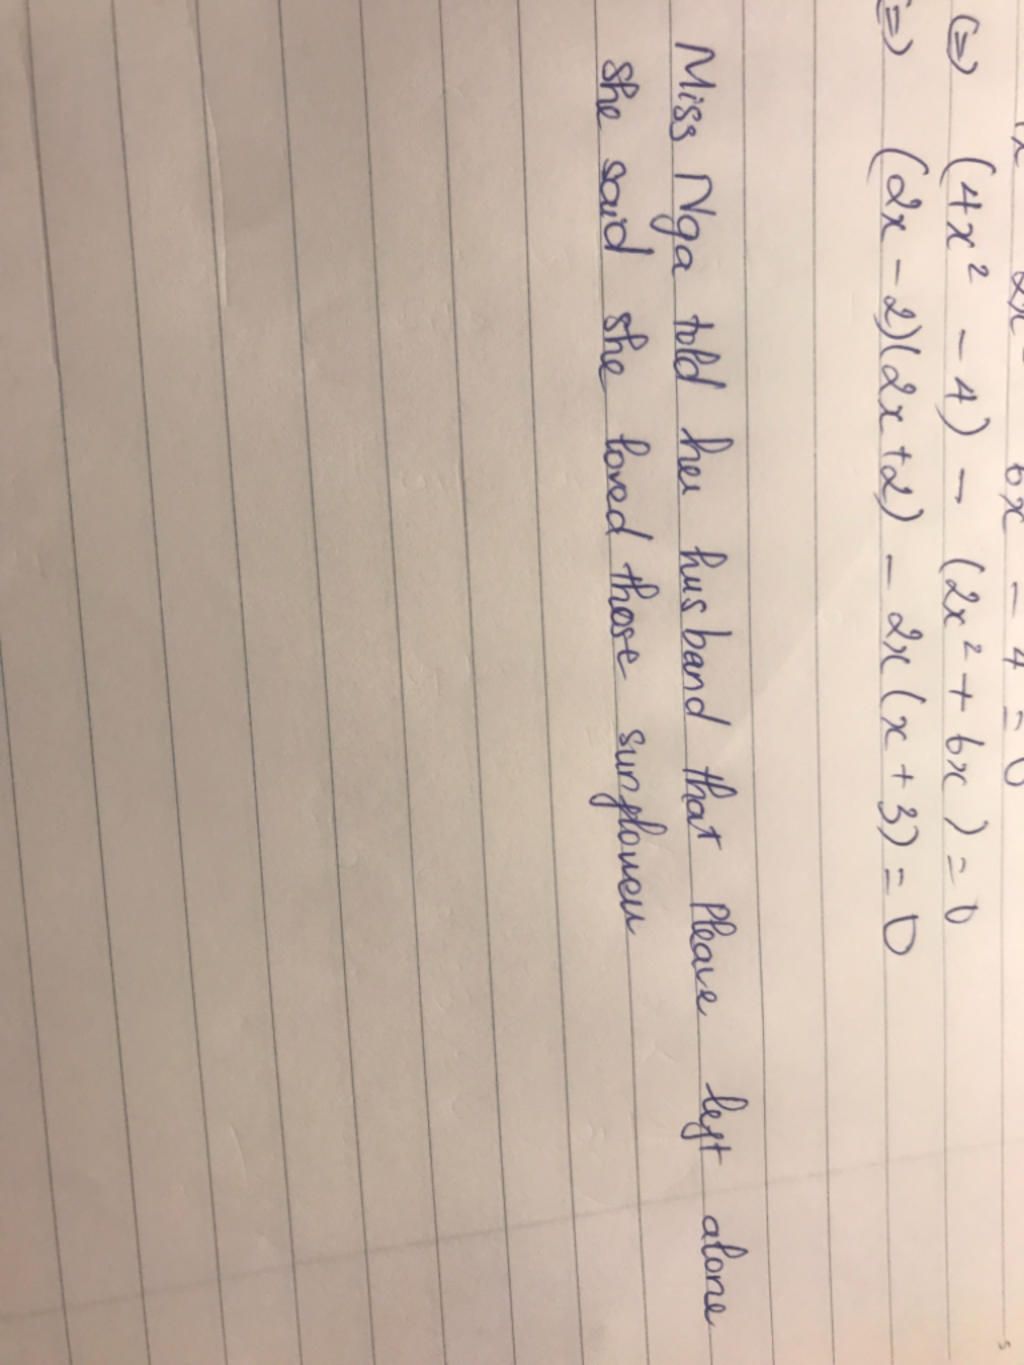 6x - 4 = 0
(=) (4x² - 4) - (2x² + 6x) = 0
(=) (2x - 2)(2x + 2) - 2x(x + 3) = 0
Miss Nga told her husband that Pleave left alone
she said she loved those sunflower